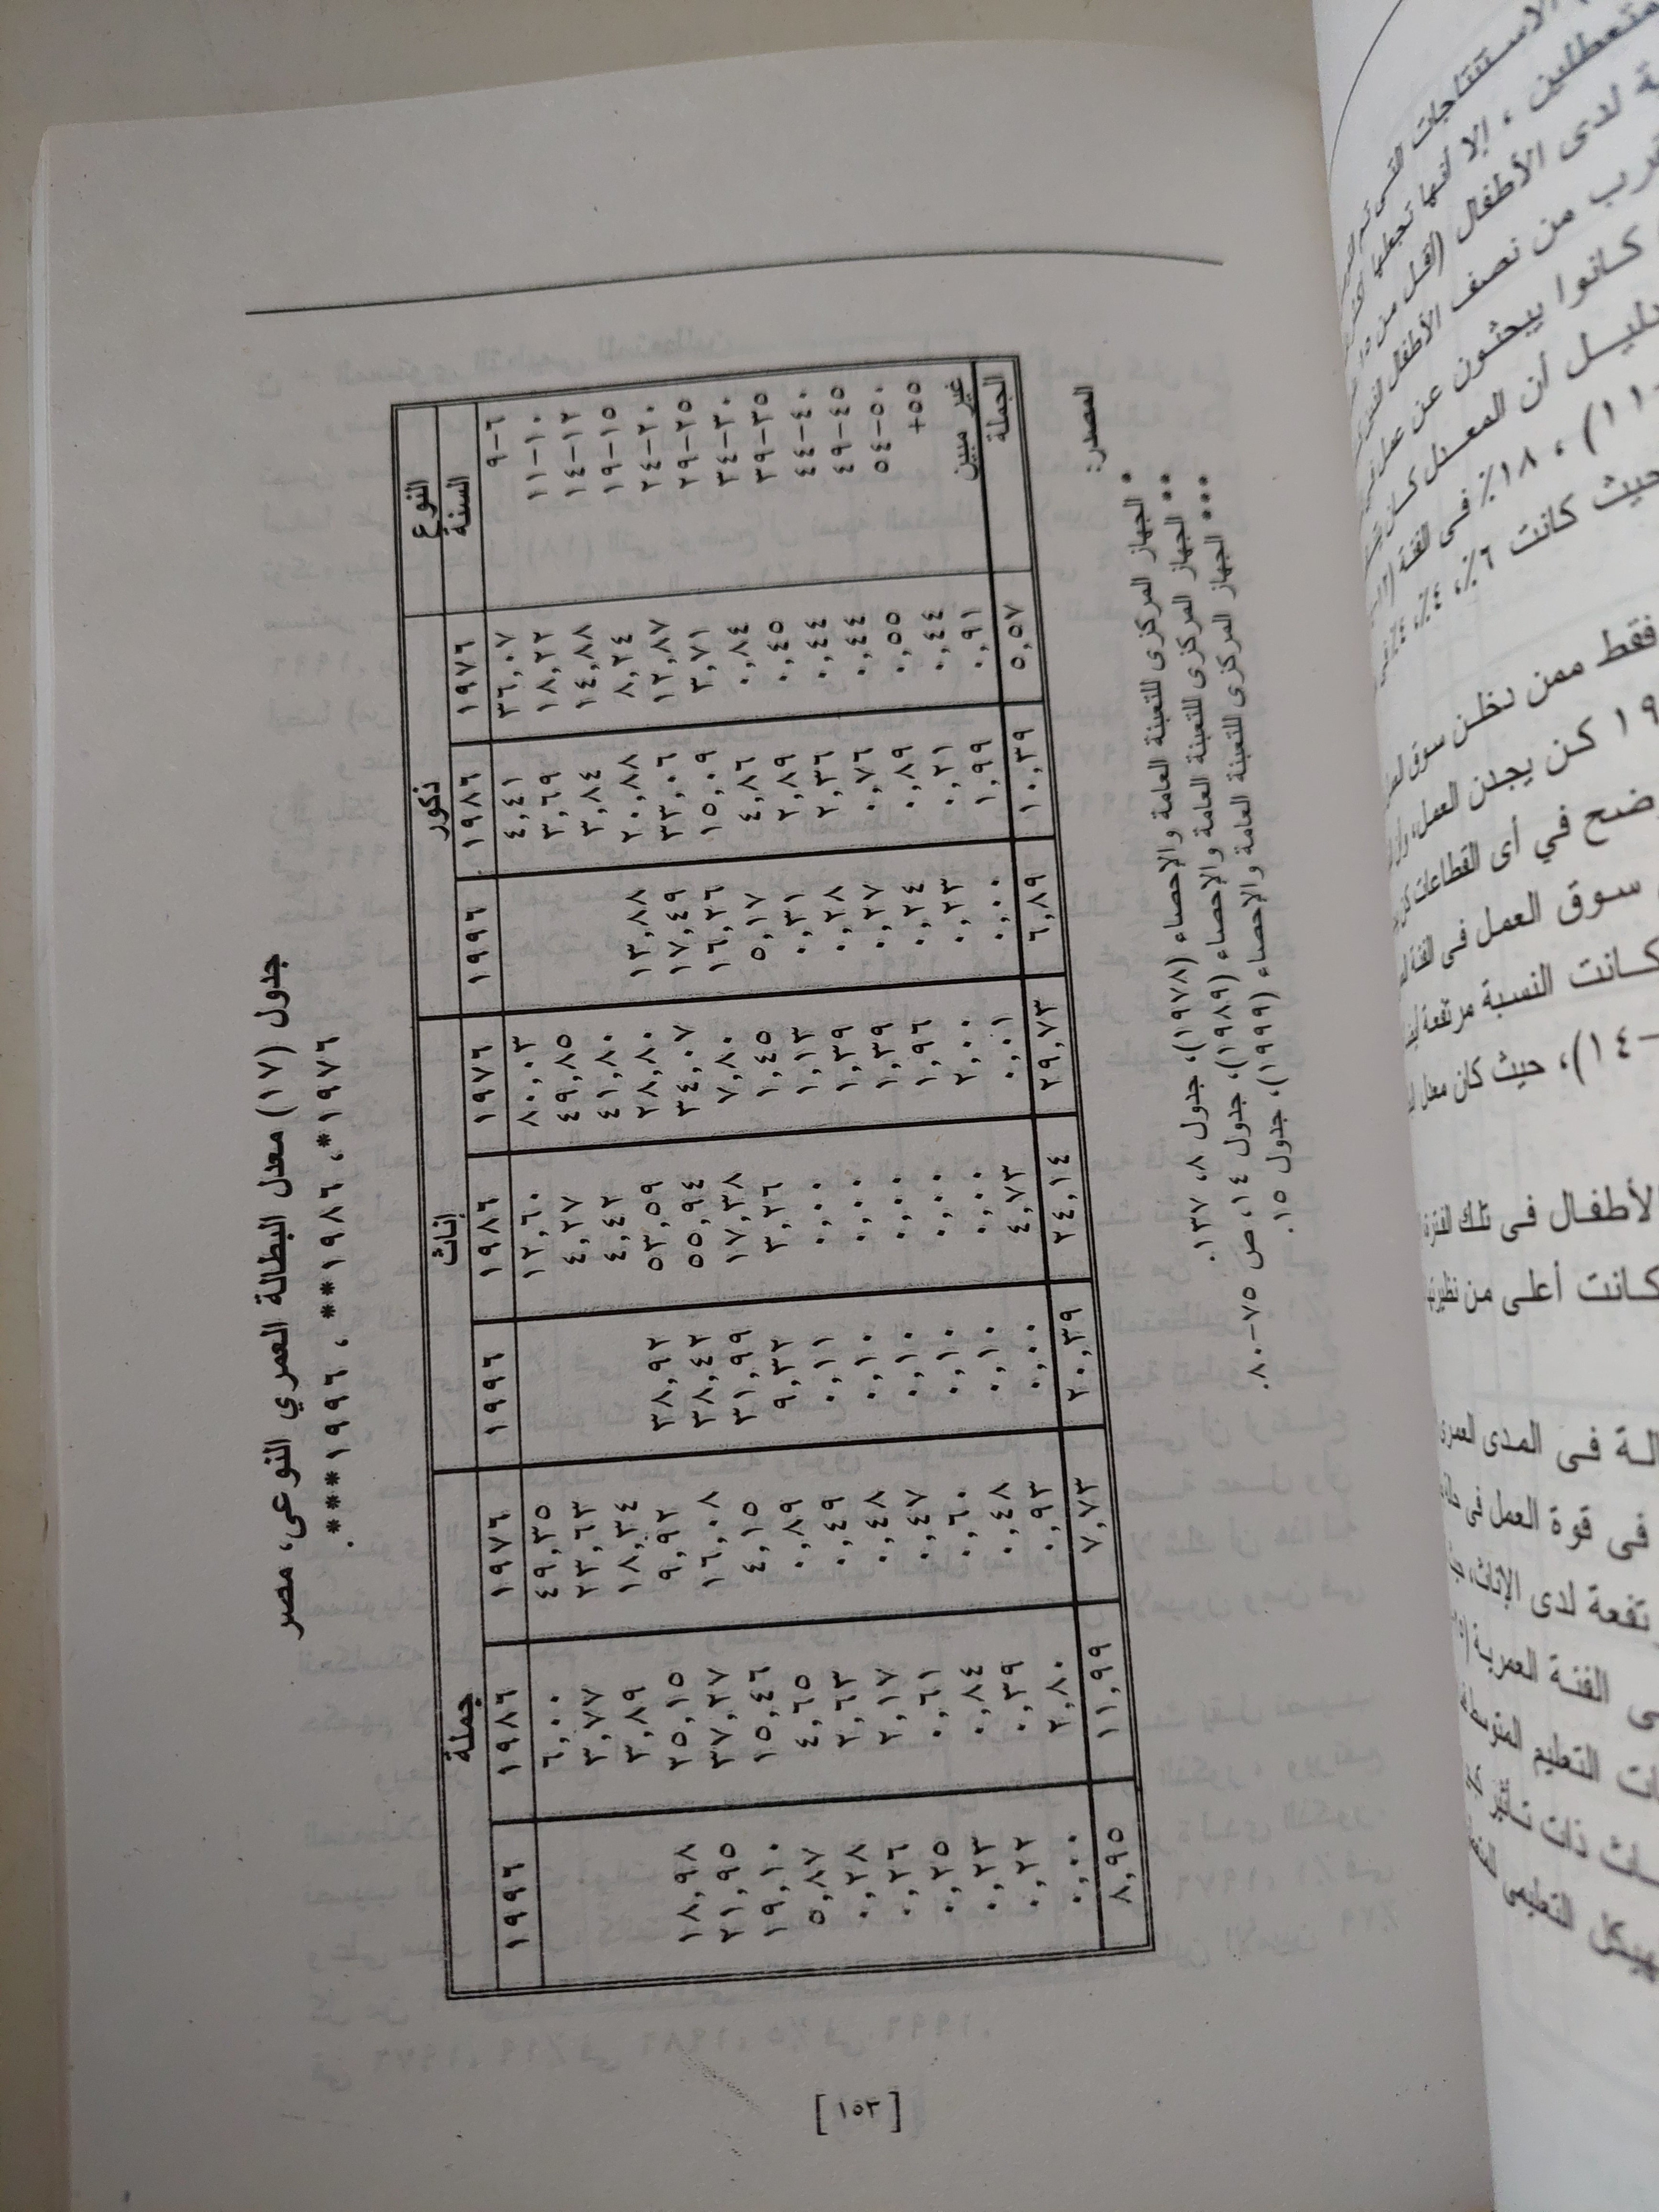 جدول (١٧) معدل البطالة العمري النوعي، مصر
١٩٧٦*، ١٩٨٦**، ١٩٩٦***.
النوع ذكور إناث جملة
السنة ١٩٧٦ ١٩٨٦ ١٩٩٦ ١٩٧٦ ١٩٨٦ ١٩٩٦ ١٩٧٦ ١٩٨٦ ١٩٩٦
٦-٩ ٣٦,٠٧ ٤,٤١ ٨٠,٠٣ ١٢,٦٠ ٤٩,٣٥ ٦,٠٠
١٠-١١ ١٨,٢٢ ٣,٦٩ ٤٩,٨٥ ٤,٢٧ ٢٣,٦٣ ٣,٧٧
١٢-١٤ ١٤,٨٨ ٣,٨٤ ٤١,٨٠ ٤,٤٢ ١٨,٣٤ ٣,٨٩
١٥-١٩ ٨,٢٤ ٢٠,٨٨ ١٣,٨٨ ٢٨,٨٠ ٥٣,٥٩ ٣٨,٩٢ ٩,٩٢ ٢٥,١٥ ١٨,٩٨
٢٠-٢٤ ١٢,٨٧ ٣٣,٠٦ ١٧,٤٩ ٣٤,٠٧ ٥٥,٩٤ ٣٨,٤٢ ١٦,٠٨ ٣٧,٢٧ ٢١,٩٥
٢٥-٢٩ ٣,٧١ ١٥,٠٩ ١٦,٢٦ ٧,٨٠ ١٧,٣٨ ٣١,٩٩ ٤,١٥ ١٥,٤٦ ١٩,١٠
٣٠-٣٤ ٠,٨٤ ٤,٨٦ ٥,١٧ ١,٤٥ ٣,٢٦ ٩,٣٢ ٠,٨٩ ٤,٦٥ ٥,٨٧
٣٥-٣٩ ٠,٤٥ ٢,٨٩ ٠,٣١ ١,١٣ ٠,٠٠ ٠,١١ ٠,٤٩ ٢,٦٣ ٠,٢٨
٤٠-٤٤ ٠,٤٤ ٢,٣٦ ٠,٢٨ ١,٣٩ ٠,٠٠ ٠,١٠ ٠,٤٨ ٢,١٧ ٠,٢٦
٤٥-٤٩ ٠,٤٤ ٠,٧٦ ٠,٢٧ ١,٣٩ ٠,٠٠ ٠,١٠ ٠,٤٧ ٠,٦١ ٠,٢٥
٥٠-٥٤ ٠,٥٥ ٠,٨٩ ٠,٢٤ ١,٩٦ ٠,٠٠ ٠,١٠ ٠,٦٠ ٠,٨٤ ٠,٢٣
٥٥+ ٠,٤٤ ٠,٢١ ٠,٢٣ ٢,٠٠ ٠,٠٠ ٠,١٠ ٠,٤٨ ٠,٣٩ ٠,٢٢
غير مبين ٠,٩١ ١,٩٩ ٠,٠٠ ٠,٠١ ٤,٧٣ ٠,٠٠ ٠,٩٣ ٢,٨٠ ٠,٠٠
الجملة ٥,٥٧ ١٠,٣٩ ٦,٨٩ ٢٩,٧٣ ٢٤,١٤ ٢٠,٣٩ ٧,٧٣ ١١,٩٩ ٨,٩٥
المصدر:
* الجهاز المركزى للتعبئة العامة والإحصاء (١٩٧٨)، جدول ٨، ١٣٧.
** الجهاز المركزى للتعبئة العامة والإحصاء (١٩٨٩)، جدول ١٤، ص ٧٥-٨٠.
*** الجهاز المركزى للتعبئة العامة والإحصاء (١٩٩٩)، جدول ١٥.
[١٥٣]
الاستنتاجات التى تم
متعطلين ، إلا أنها تجعلها
لدى الأطفال (أقل من ١٥
من نصف الأطفال
كانوا يبحثون عن عمل
أن المعدل كان
١١) ، ١٨٪ فى الفئة
حيث كانت ٦٪، ٤٪، ٤٪
فقط ممن دخلن سوق
كن يجدن العمل،
فى أى القطاعات
سوق العمل فى الفئة
كانت النسبة مرتفعة
-١٤)، حيث كان معدل
الأطفال فى تلك الفترة
كانت أعلى من
فى المدى العمرى
فى قوة العمل فى
لدى الإناث،
الفئة العمرية
التعليم
ذات
التعليمى